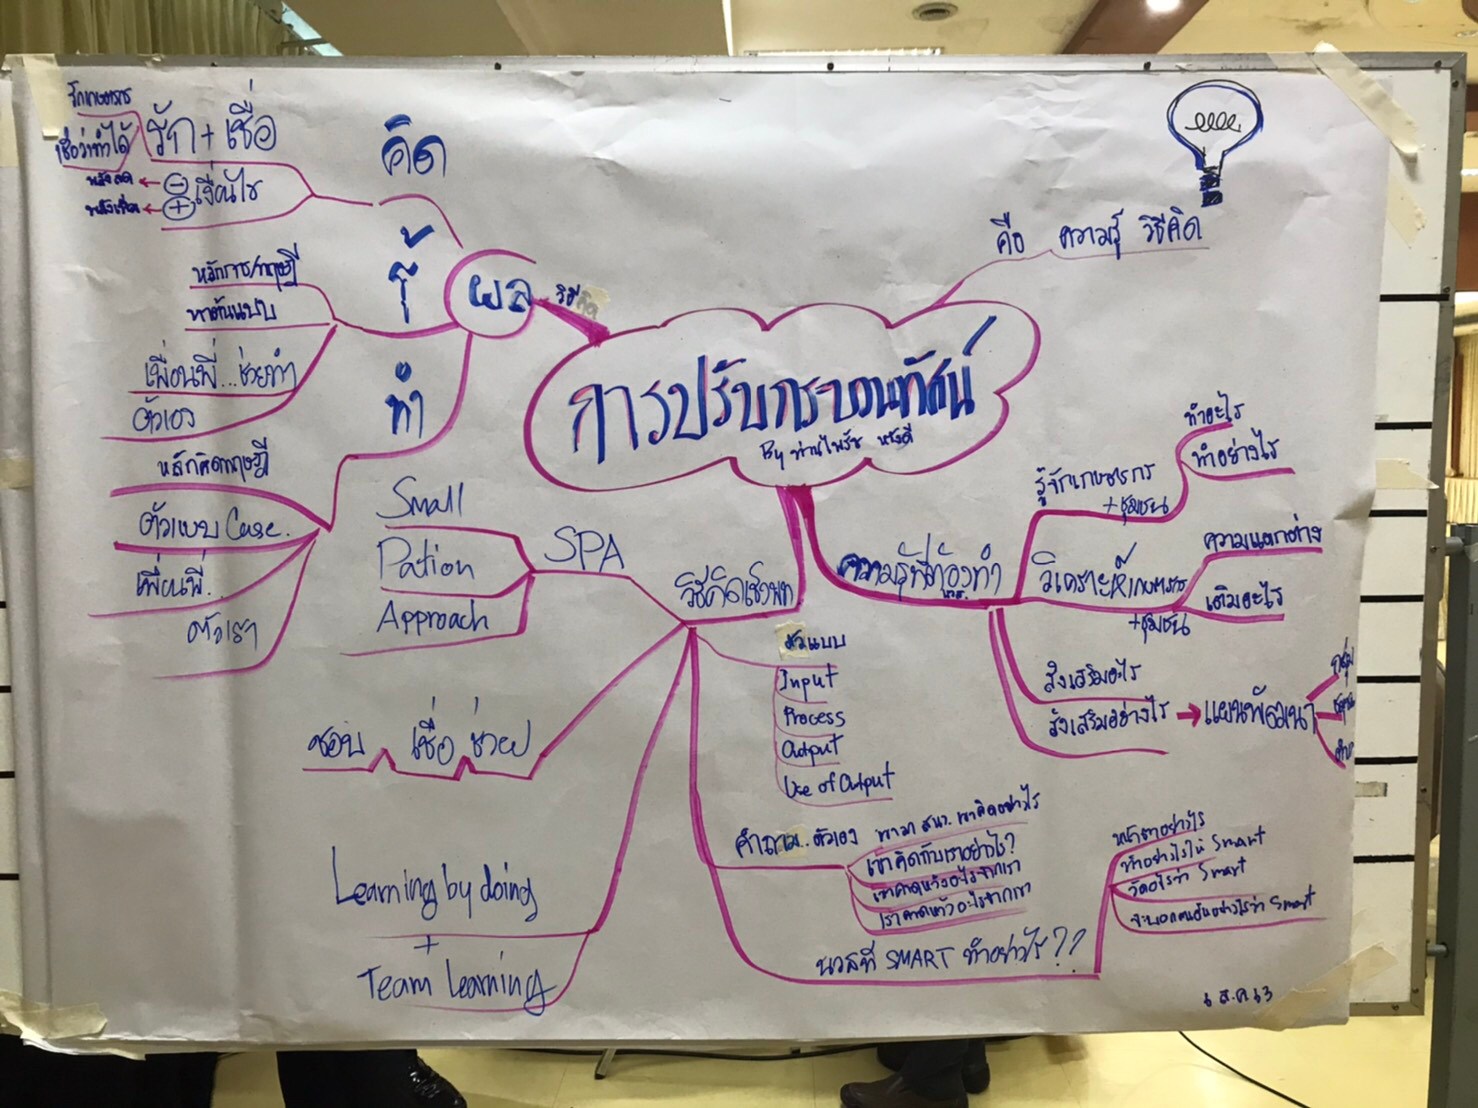 รักเกษตรกร
เชื่อว่าทำได้
รัก + เชื่อ
คิด
พลังลด ← ⊖
เงื่อนไข
⊕
คือ ความรู้ วิธีคิด
รู้
ผล
วิธีคิด
หลักการ/ทฤษฎี
หาต้นแบบ
เพื่อนพี่...ช่วยทำ
ตัวเอง
ทำ
การปรับกระบวนทัศน์
By ท่านไพรัช หวังดี
หลักคิดทฤษฎี
ตัวแบบ Case.
เพื่อนพี่..
ตัวเรา
Small
Pation
Approach
SPA
วิธีคิดเชิงบวก
ความรู้ที่ต้องทำ
รู้จักเกษตรกร
+ชุมชน
ทำอะไร
ทำอย่างไร
วิเคราะห์เกษตรกร
+ชุมชน
ความแตกต่าง
เติมอะไร
ส่งเสริมอะไร
ส่งเสริมอย่างไร → แผนพัฒนา
กลุ่ม
ตัวแบบ
Input
Process
Output
Use of Output
ชอบ เชื่อ ช่วย
คำถาม..ตัวเอง
เขาคิดกับเราอย่างไร?
เขาคาดหวังอะไรจากเรา
เราคาดหวังอะไรจากเขา
Learning by doing
+
Team Learning
นวสที SMART ทำอย่างไร??
หน้าตาอย่างไร
ทำอย่างไรให้ Smart
วัดอะไรว่า Smart
จะบอกคนอื่นอย่างไรว่า Smart